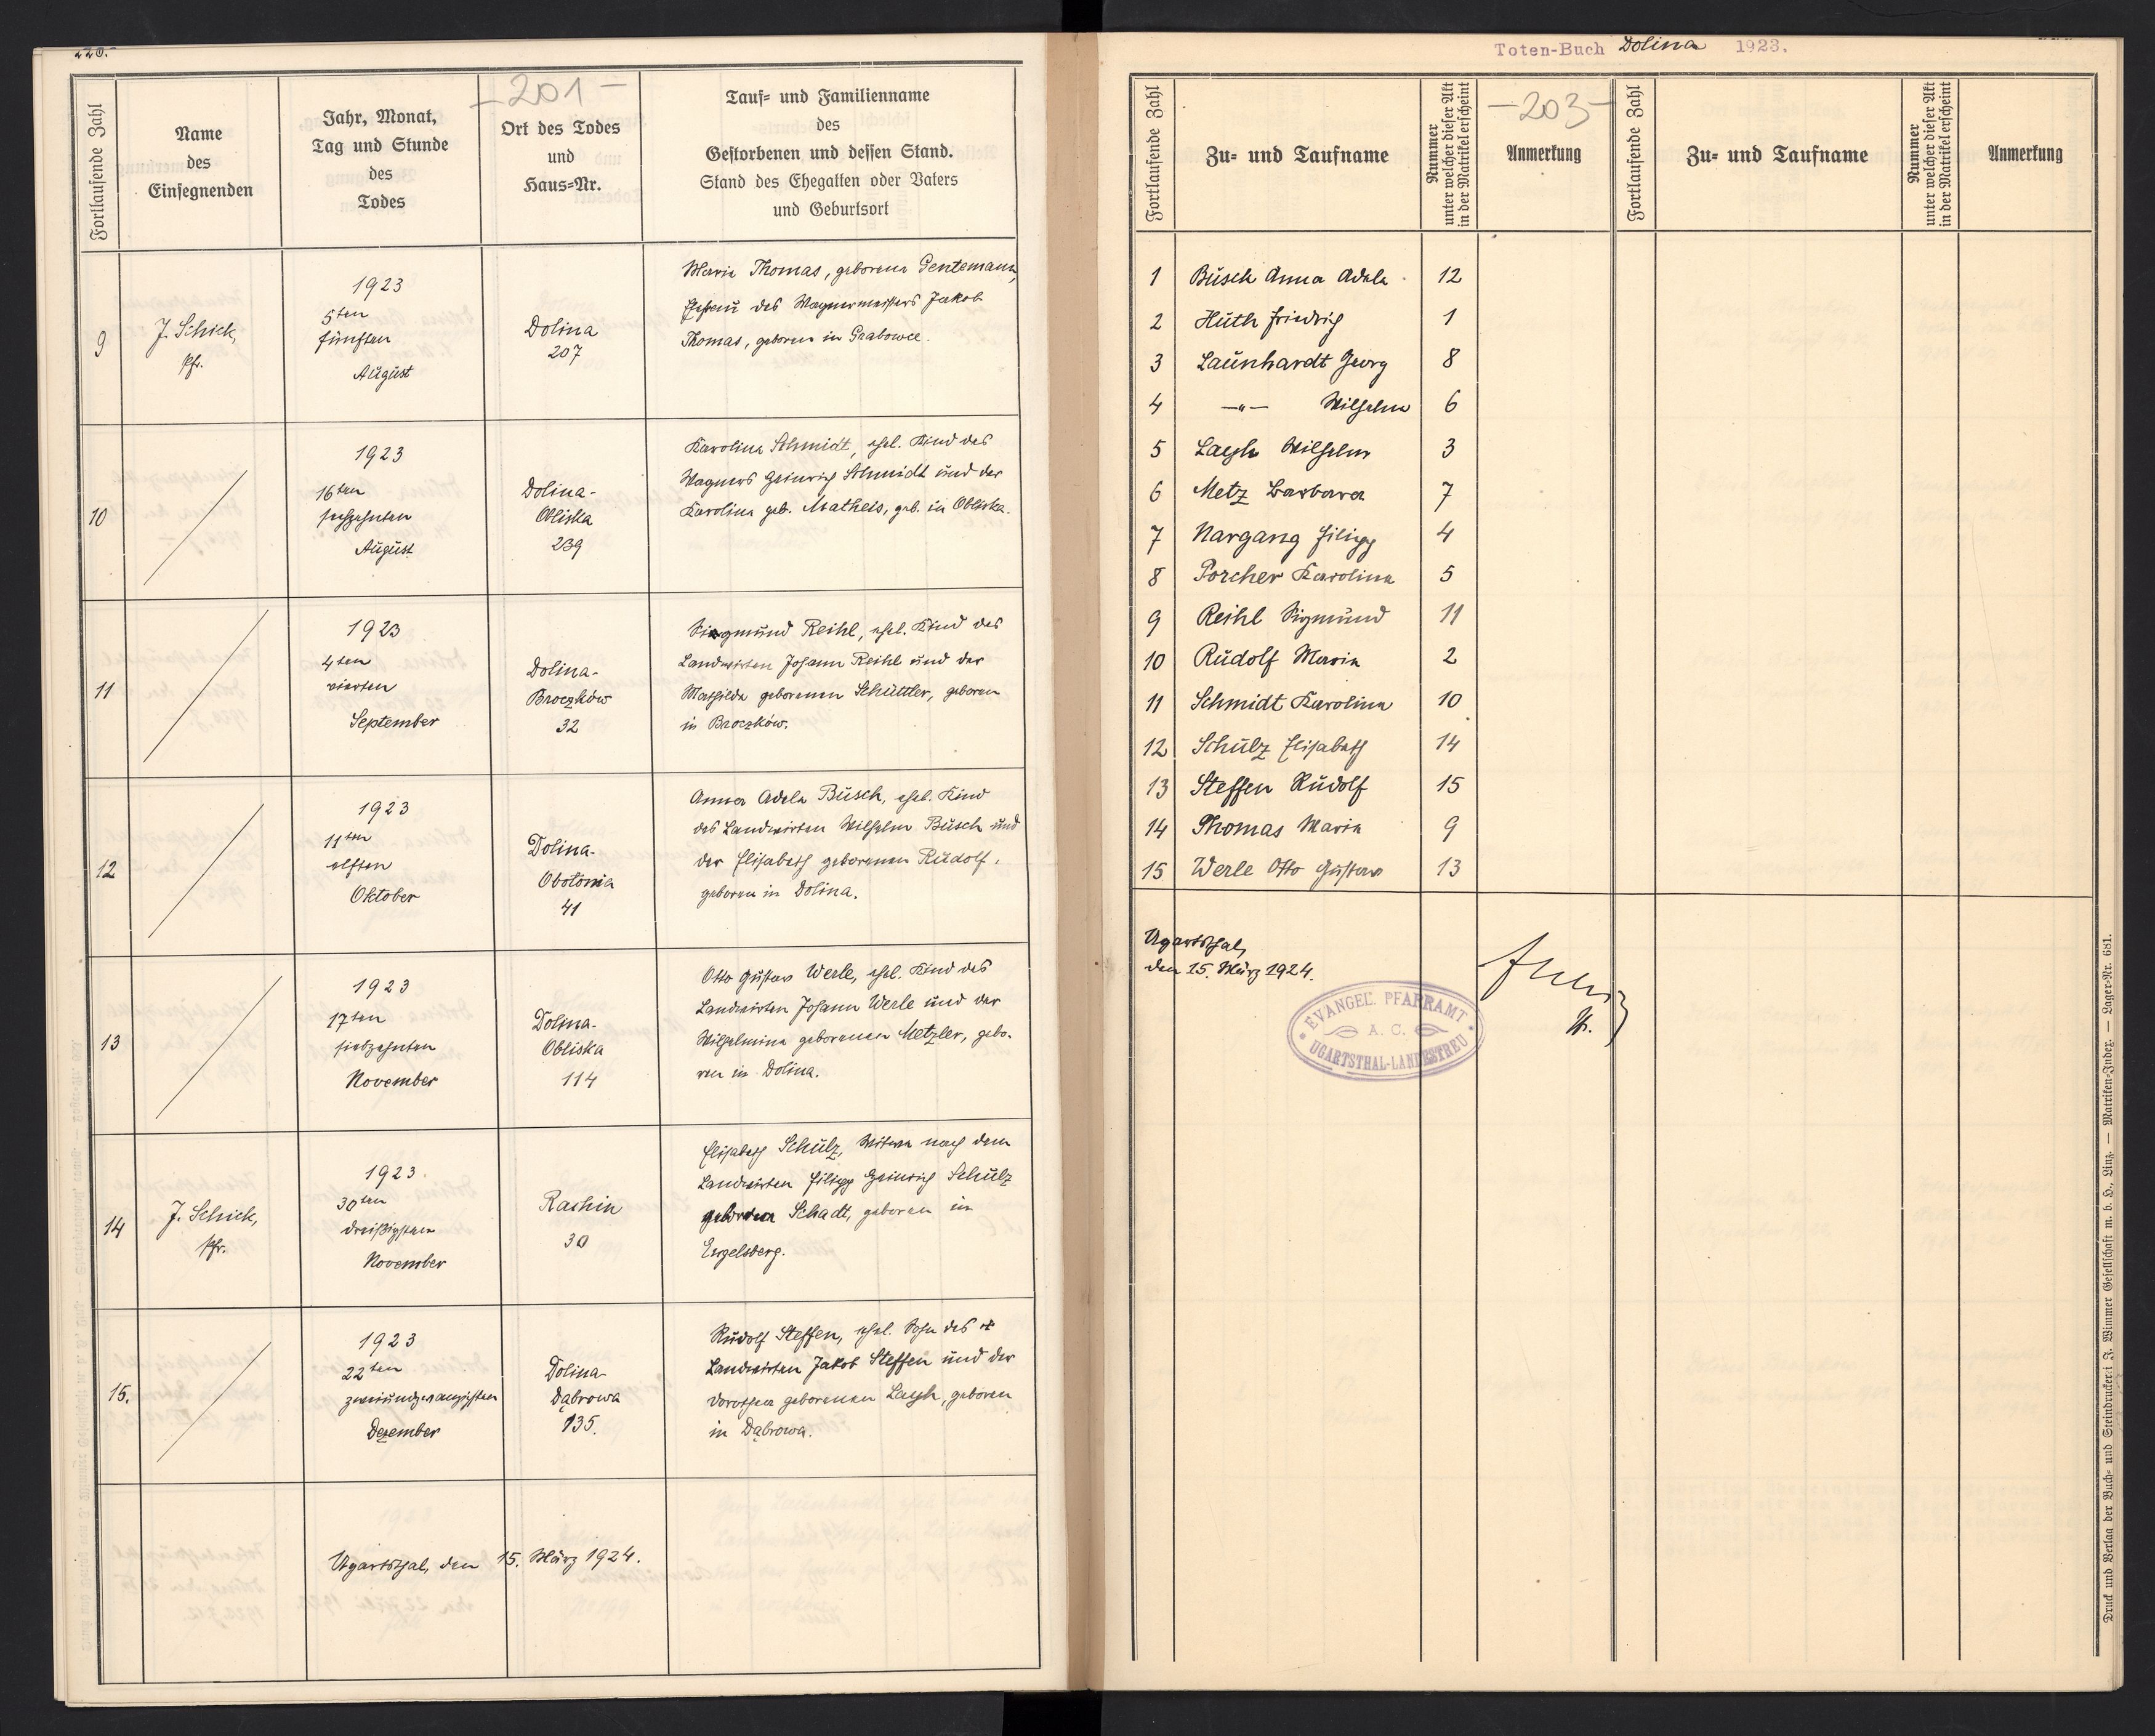 220.
- 201 -
Fortlaufende Zahl
Name
des
Einsegnenden
Jahr, Monat,
Tag und Stunde
des
Todes
Ort des Todes
und
Haus=Nr.
Tauf= und Familienname
des
Gestorbenen und dessen Stand.
Stand des Ehegatten oder Vaters
und Geburtsort
9
J. Schick,
Pfr.
1923
5ten
fünften
August
Dolina
207
Maria Thomas, geborene Gentemann,
Ehefrau des Wagnermeisters Jakob
Thomas, geboren in Grabowce.
10
1923
16ten
sechzehnten
August
Dolina-
Obliska
239
Karolina Schmidt, ehel. Kind des
Wagners Heinrich Schmidt und der
Karolina geb. Matheis, geb. in Obliska.
11
1923
4ten
vierten
September
Dolina-
Broczków
32
Siegmund Reihl, ehel. Kind des
Landwirten Johann Reihl und der
Mathilde geborenen Schüttler, geboren
in Broczków.
12
1923
11ten
elften
Oktober
Dolina-
Obolonia
41
Anna Adela Busch, ehel. Kind
des Landwirten Wilhelm Busch und
der Elisabeth geborenen Rudolf,
geboren in Dolina.
13
1923
17ten
siebzehnten
November
Dolina-
Obliska
114
Otto Gustav Werle, ehel. Kind des
Landwirten Johann Werle und der
Wilhelmine geborenen Metzler, gebo-
ren in Dolina.
14
J. Schick,
Pfr.
1923.
30ten
dreißigsten
November
Rachin
30
Elisabeth Schulz, Witwe nach dem
Landwirten Filipp Heinrich Schulz
geborene Schadt, geboren in
Engelsberg.
15.
1923
22ten
zweiundzwanzigsten
Dezember
Dolina-
Dąbrowa
135.
Rudolf Steffen, ehel. Sohn des +
Landwirten Jakob Steffen und der
Dorothea geborenen Layh, geboren
in Dąbrowa.
Ugartsthal, den 15. März 1924.
Toten-Buch Dolina 1923.
Fortlaufende Zahl
Zu= und Taufname
Nummer
unter welcher dieser Akt
in der Matrikel erscheint
- 203 -
Anmerkung
Fortlaufende Zahl
Zu= und Taufname
Nummer
unter welcher dieser Akt
in der Matrikel erscheint
Anmerkung
1 Busch Anna Adela 12
2 Huth Friedrich 1
3 Launhardt Georg 8
4 -"- Wilhelm 6
5 Layh Wilhelm 3
6 Metz Barbara 7
7 Nargang Filipp 4
8 Porcher Karolina 5
9 Reihl Sigmund 11
10 Rudolf Maria 2
11 Schmidt Karolina 10
12 Schulz Elisabeth 14
13 Steffen Rudolf 15
14 Thomas Maria 9
15 Werle Otto Gustav 13
Ugartsthal,
den 15. März 1924.
EVANGEL. PFARRAMT
A. C.
UGARTSTHAL-LANDESTREU
Druck und Verlag der Buch= und Steindruckerei J. Wimmer Gesellschaft m. b. H., Linz. — Matriken=Index. — Lager=Nr. 681.